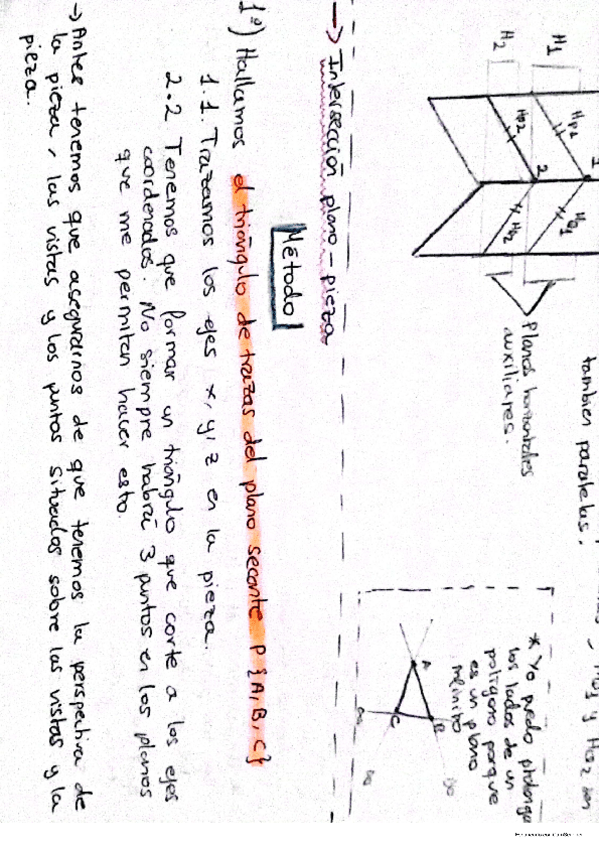 también paralelas.
H1
H2
HP1
HP2
1
2
Planos horizontales
auxiliares.
* Yo puedo prolongar
los lados de un
polígono porque
es un plano
infinito
A
B
C
∞
∞
∞
→ Intersección plano-pieza
Método
1º) Hallamos el triángulo de trazas del plano secante P {A, B, C}
1.1. Trazamos los ejes x, y, z en la pieza.
2.2 Tenemos que formar un triángulo que corte a los ejes
coordenados. No siempre habrá 3 puntos en los planos
que me permitan hacer esto.
→ Antes tenemos que asegurarnos de que tenemos la perspectiva de
la pieza, las vistas y los puntos situados sobre las vistas y la
pieza.